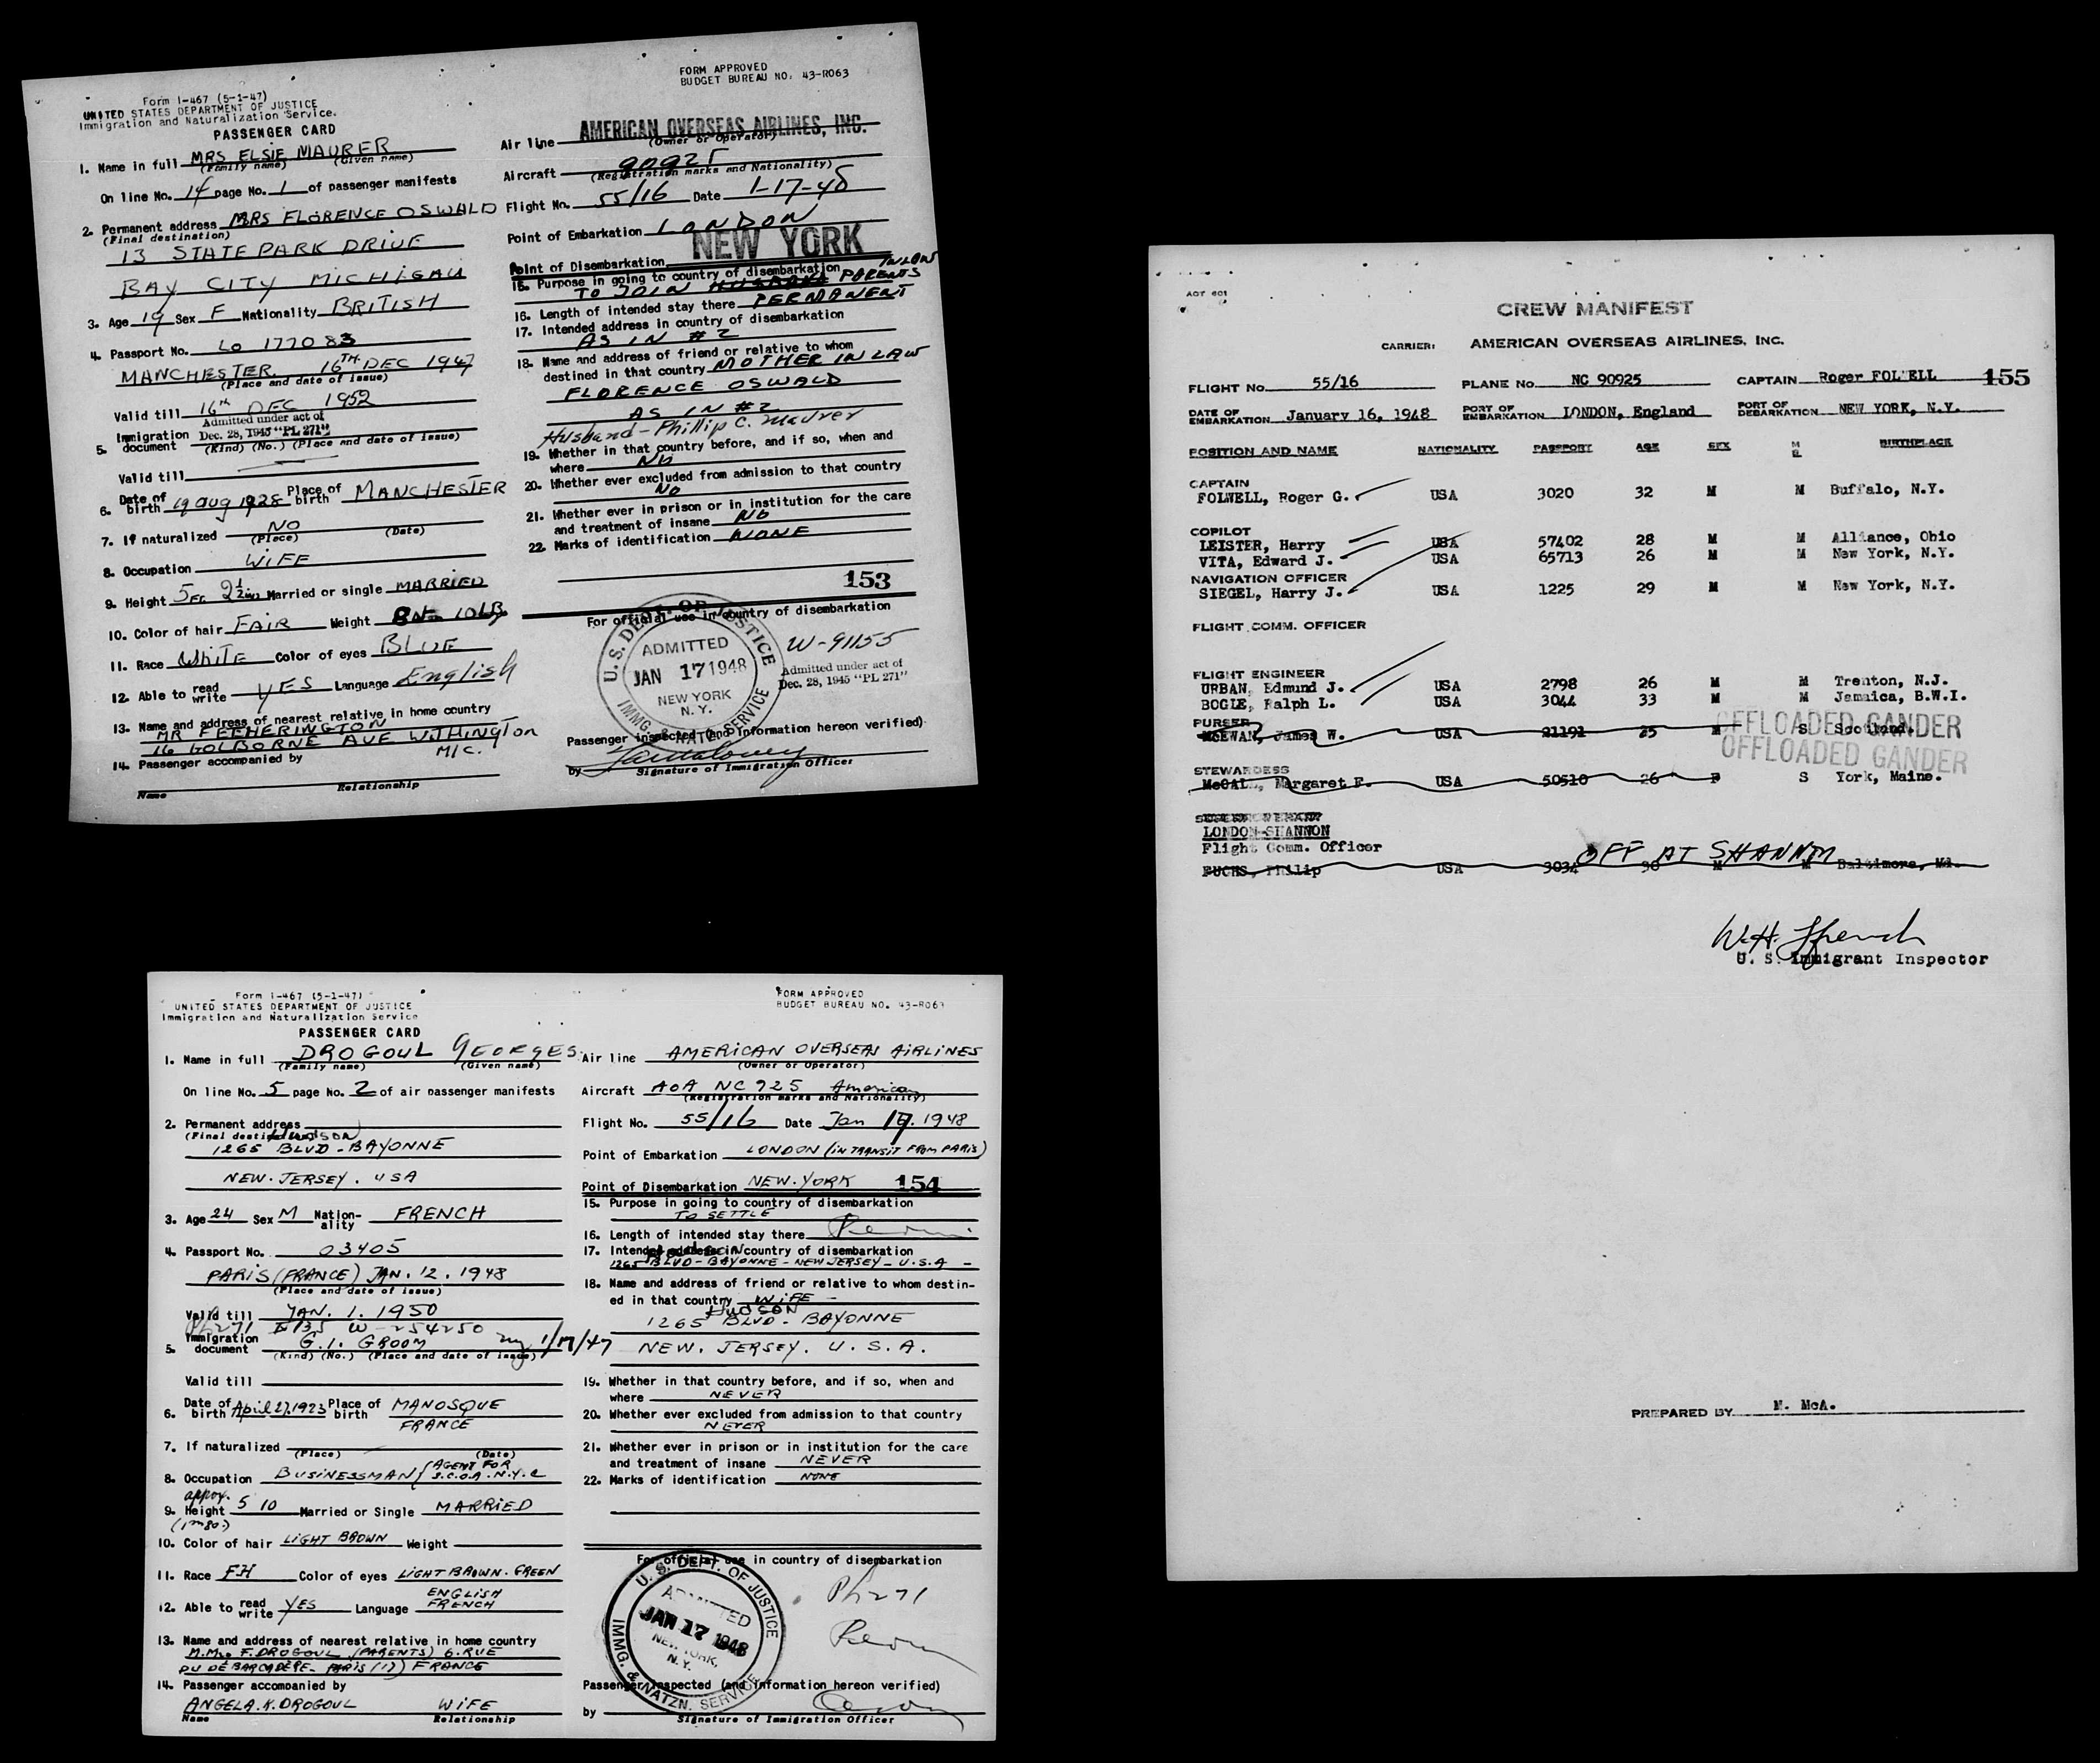 Form I-467 (5-1-47)
UNITED STATES DEPARTMENT OF JUSTICE
Immigration and Naturalization Service.
PASSENGER CARD
1. Name in full MRS ELSIE MAURER
(Family name) (Given name)
On line No. 14 page No. 1 of passenger manifests
2. Permanent address MRS FLORENCE OSWALD
(Final destination)
13 STATE PARK DRIVE
BAY CITY MICHIGAN
3. Age 19 Sex F Nationality BRITISH
4. Passport No. LO 177083
MANCHESTER 16TH DEC 1947
(Place and date of issue)
Valid till 16th DEC 1952
Admitted under act of
Dec. 28, 1945 "PL 271"
5. Immigration document
(Kind) (No.) (Place and date of issue)
Valid till
6. Date of birth 19 Aug 1928 Place of birth MANCHESTER
7. If naturalized NO
(Place) (Date)
8. Occupation WIFE
9. Height 5FT 2½ins Married or single MARRIED
10. Color of hair FAIR Weight 8st 10LB
11. Race White Color of eyes BLUE
12. Able to read write YES Language English
13. Name and address of nearest relative in home country
MR FETHERINGTON
16 GOLBORNE AVE WITHINGTON
M/C.
14. Passenger accompanied by
Name Relationship
FORM APPROVED
BUDGET BUREAU NO. 43-R063
Air line AMERICAN OVERSEAS AIRLINES, INC.
(Owner or Operator)
Aircraft 90925
(Registration marks and Nationality)
Flight No. 55/16 Date 1-17-48
Point of Embarkation LONDON
Point of Disembarkation NEW YORK
15. Purpose in going to country of disembarkation
TO JOIN HUSBAND PARENTS IN LAW
16. Length of intended stay there PERMANENT
17. Intended address in country of disembarkation
AS IN #2
18. Name and address of friend or relative to whom
destined in that country MOTHER IN LAW
FLORENCE OSWALD
AS IN #2
Husband - Phillip C. Maurer
19. Whether in that country before, and if so, when and
where No
20. Whether ever excluded from admission to that country
NO
21. Whether ever in prison or in institution for the care
and treatment of insane No
22. Marks of identification NONE
153
For official use in country of disembarkation
U. S. DEPT. OF JUSTICE
ADMITTED
JAN 17 1948
NEW YORK
N. Y.
IMMG. & NATZN. SERVICE
W-91155
Admitted under act of
Dec. 28, 1945 "PL 271"
Passenger inspected (and information hereon verified)
by
Signature of Immigration Officer
Form I-467 (5-1-47)
UNITED STATES DEPARTMENT OF JUSTICE
Immigration and Naturalization Service
PASSENGER CARD
1. Name in full DROGOUL GEORGES
(Family name) (Given name)
On line No. 5 page No. 2 of air passenger manifests
2. Permanent address
(Final destination)
HUDSON
1265 BLVD - BAYONNE
NEW. JERSEY. USA
3. Age 24 Sex M Nation-ality FRENCH
4. Passport No. 03405
PARIS (FRANCE) JAN. 12. 1948
(Place and date of issue)
Valid till JAN. 1. 1950
PL 271 W-254250
5. Immigration document G.I. GROOM 1/17/47
(Kind) (No.) (Place and date of issue)
Valid till
6. Date of birth April 27.1923 Place of birth MANOSQUE
FRANCE
7. If naturalized
(Place) (Date)
8. Occupation BUSINESSMAN (AGENT FOR
S.C.O.A. N.Y.C
approx.
9. Height 5 10 Married or Single MARRIED
(1m80.)
10. Color of hair LIGHT BROWN Weight
11. Race FH Color of eyes LIGHT BROWN. GREEN
12. Able to read write YES Language ENGLISH
FRENCH
13. Name and address of nearest relative in home country
F. DROGOUL (PARENTS) 6. RUE
DU DÉBARCADÈRE - PARIS (17) FRANCE
14. Passenger accompanied by
ANGELA.K.DROGOUL WIFE
Name Relationship
FORM APPROVED
BUDGET BUREAU NO. 43-R063
Air line AMERICAN OVERSEAS AIRLINES
(Owner or Operator)
Aircraft AOA NC 925 American
(Registration marks and Nationality)
Flight No. 55/16 Date Jan 17. 1948
Point of Embarkation LONDON (IN TRANSIT FROM PARIS)
Point of Disembarkation NEW. YORK 154
15. Purpose in going to country of disembarkation
TO SETTLE
16. Length of intended stay there Perm
17. Intended address in country of disembarkation
Hudson
1265 BLVD - BAYONNE - NEW JERSEY - U.S.A -
18. Name and address of friend or relative to whom destin-
ed in that country WIFE -
HUDSON
1265 BLVD - BAYONNE
NEW. JERSEY. U.S.A.
19. Whether in that country before, and if so, when and
where NEVER
20. Whether ever excluded from admission to that country
NEVER
21. Whether ever in prison or in institution for the care
and treatment of insane NEVER
22. Marks of identification NONE
For official use in country of disembarkation
U. S. DEPT. OF JUSTICE
ADMITTED
JAN 17 1948
NEW YORK,
N.Y.
IMMG. & NATZN. SERVICE
PL 271
Perm
Passenger inspected (and information hereon verified)
by
Signature of Immigration Officer
AOT 601
CREW MANIFEST
CARRIER: AMERICAN OVERSEAS AIRLINES, INC.
FLIGHT No. 55/16 PLANE No. NC 90925 CAPTAIN Roger FOLWELL 155
DATE OF EMBARKATION January 16, 1948 PORT OF EMBARKATION LONDON, England PORT OF DEBARKATION NEW YORK, N.Y.
POSITION AND NAME NATIONALITY PASSPORT AGE SEX M S BIRTHPLACE
CAPTAIN
FOLWELL, Roger G. USA 3020 32 M M Buffalo, N.Y.
COPILOT
LEISTER, Harry USA 57402 28 M M Alliance, Ohio
VITA, Edward J. USA 65713 26 M M New York, N.Y.
NAVIGATION OFFICER
SIEGEL, Harry J. USA 1225 29 M M New York, N.Y.
FLIGHT COMM. OFFICER
FLIGHT ENGINEER
URBAN, Edmund J. USA 2798 26 M M Trenton, N.J.
BOGLE, Ralph L. USA 3044 33 M M Jamaica, B.W.I.
PURSER OFFLOADED GANDER
McEWAN, James W. USA 21191 25 M S Scotland.
OFFLOADED GANDER
STEWARDESS
McCALL, Margaret F. USA 50510 26 F S York, Maine.
LONDON-SHANNON
Flight Comm. Officer
OFF AT SHANNON
FUCHS, Philip USA 3034 30 M M Baltimore, Md.
W.H. French
U. S. Immigrant Inspector
PREPARED BY M. McA.